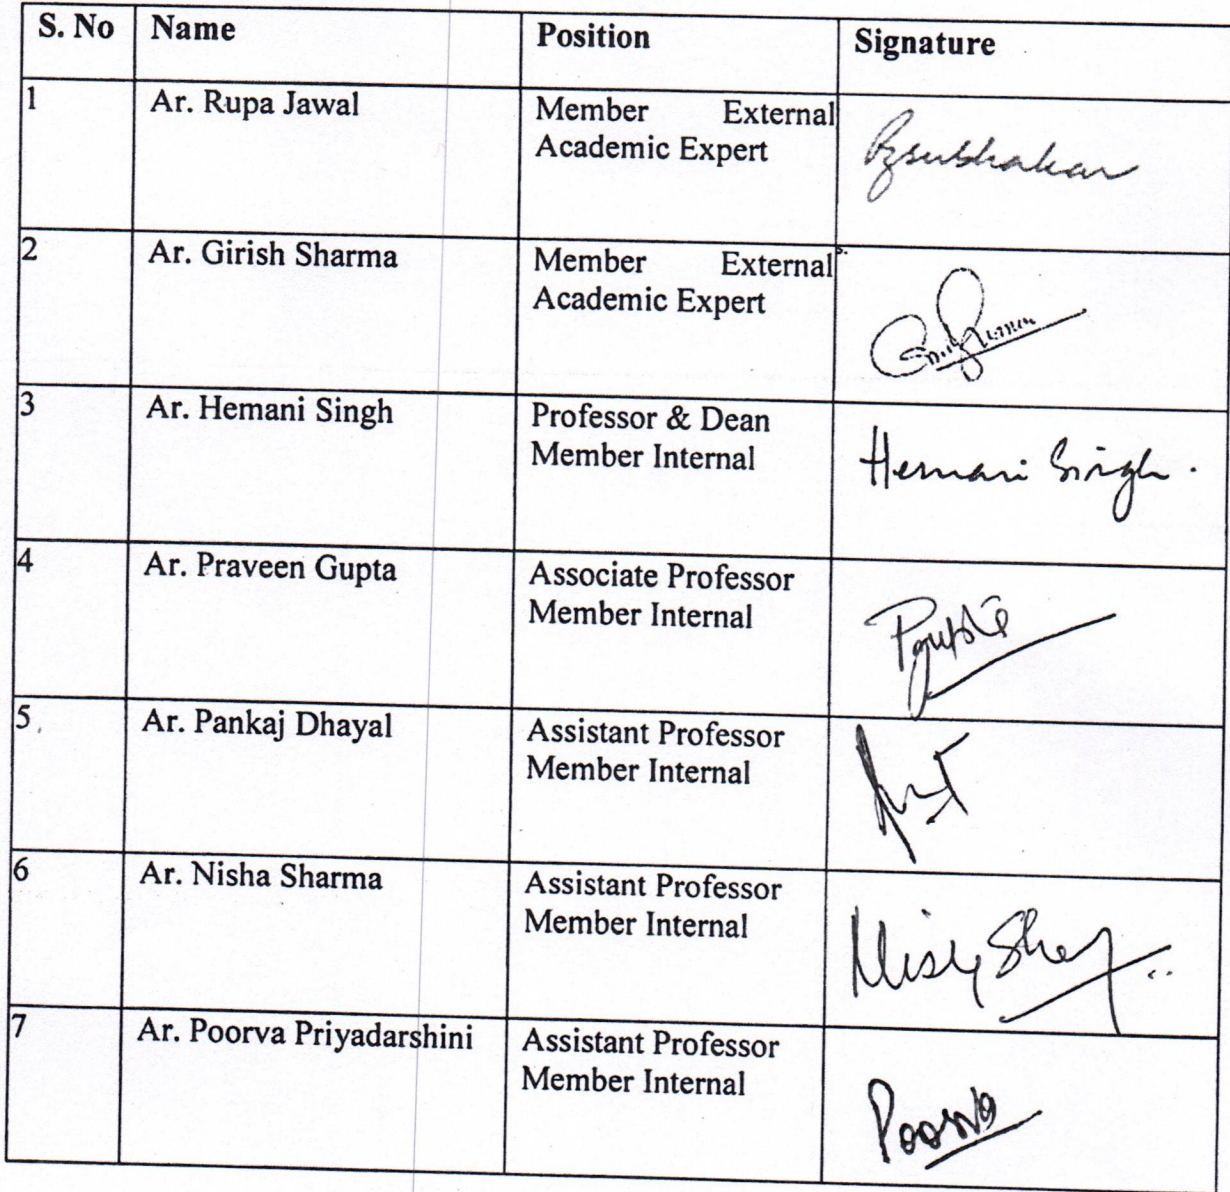 S. No Name Position Signature
1 Ar. Rupa Jawal Member External
Academic Expert
2 Ar. Girish Sharma Member External
Academic Expert
3 Ar. Hemani Singh Professor & Dean
Member Internal Hemani Singh.
4 Ar. Praveen Gupta Associate Professor
Member Internal
5 Ar. Pankaj Dhayal Assistant Professor
Member Internal
6 Ar. Nisha Sharma Assistant Professor
Member Internal
7 Ar. Poorva Priyadarshini Assistant Professor
Member Internal
Poorva